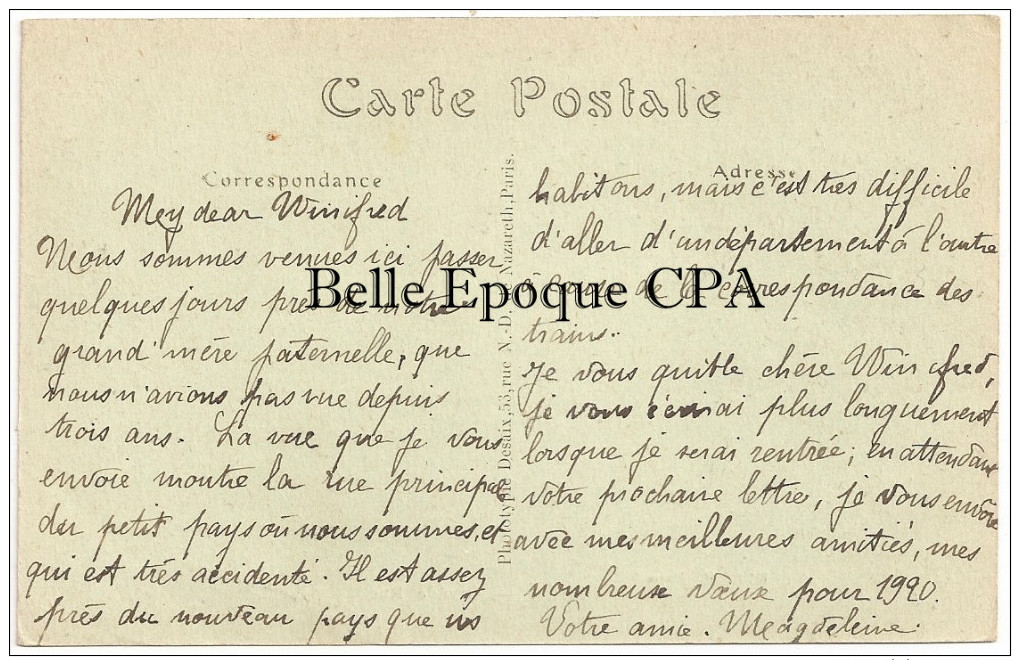 Carte Postale
Correspondance
Mey dear Winifred
Nous sommes venues ici passer
quelques jours près de notre
grand'mère paternelle, que
nous n'avions pas vue depuis
trois ans. La vue que je vous
envoie montre la rue principale
du petit pays où nous sommes, et
qui est très accidenté. Il est assez
près du nouveau pays que ns
Phototypie Desaix, 53, rue N.-D. de Nazareth, Paris.
Adresse
habitons, mais c'est très difficile
d'aller d'un département à l'autre
à cause de la correspondance des
trains.
Je vous quitte chère Winifred,
je vous écrirai plus longuement
lorsque je serai rentrée; en attendant
votre prochaine lettre, je vous envoie
avec mes meilleures amitiés, mes
nombreux vœux pour 1920.
Votre amie. Magdeleine.
Belle Epoque CPA